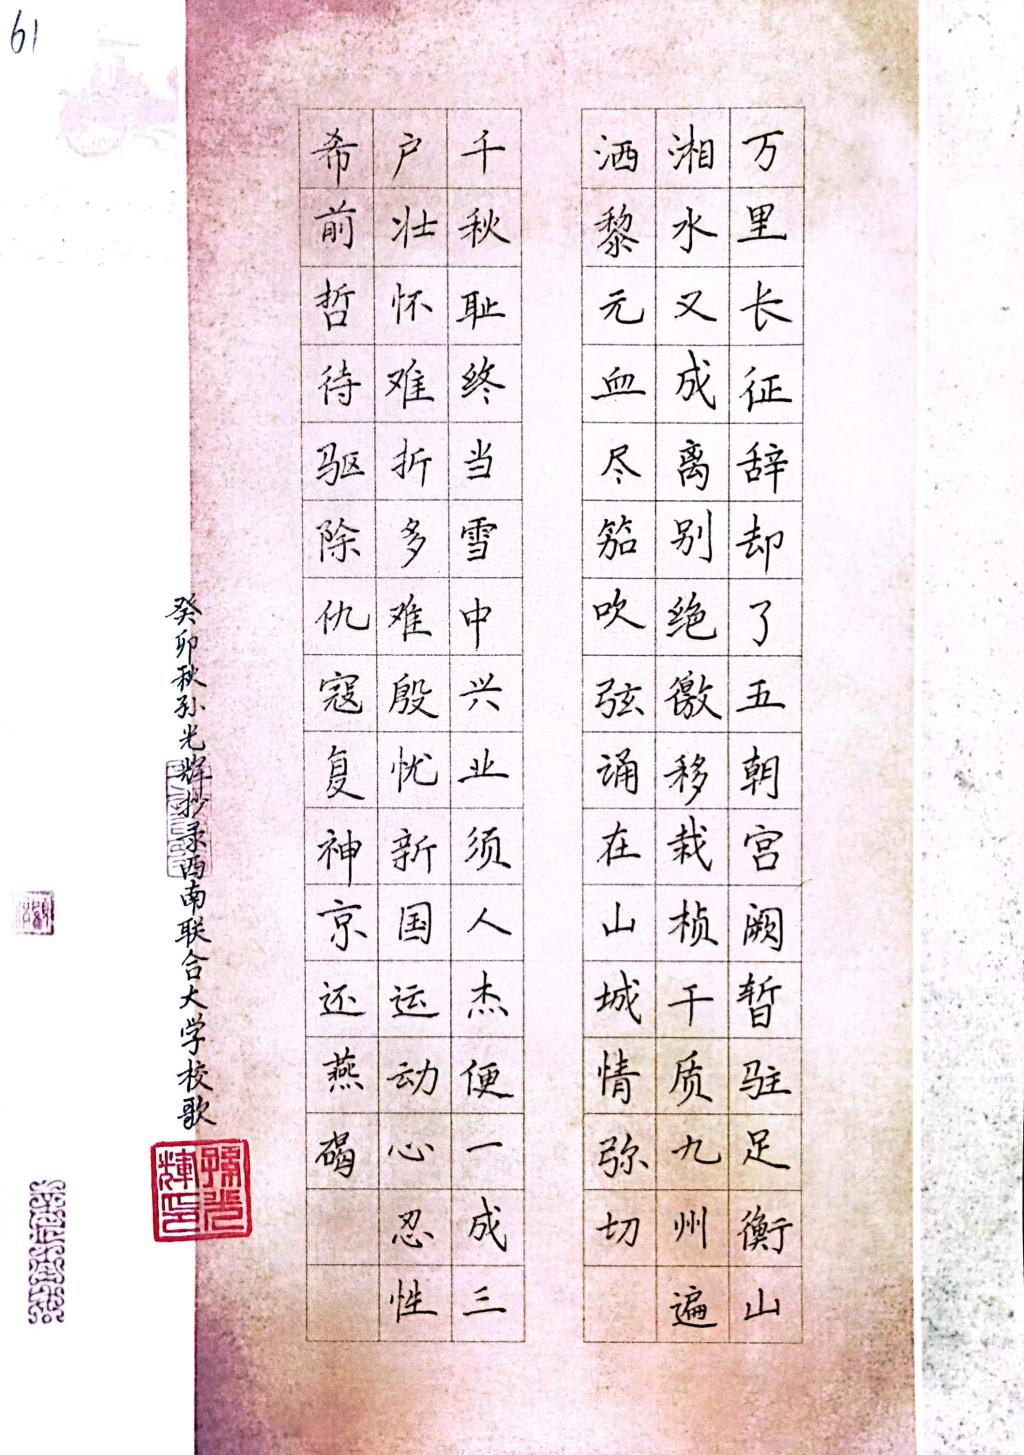 61
万里长征辞却了五朝宫阙暂驻足衡山
湘水又成离别绝徼移栽桢干质九州遍
洒黎元血尽笳吹弦诵在山城情弥切
千秋耻终当雪中兴业须人杰便一成三
户壮怀难折多难殷忧新国运动心忍性
希前哲待驱除仇寇复神京还燕碣
癸卯秋孙光辉抄录西南联合大学校歌
孫光輝印